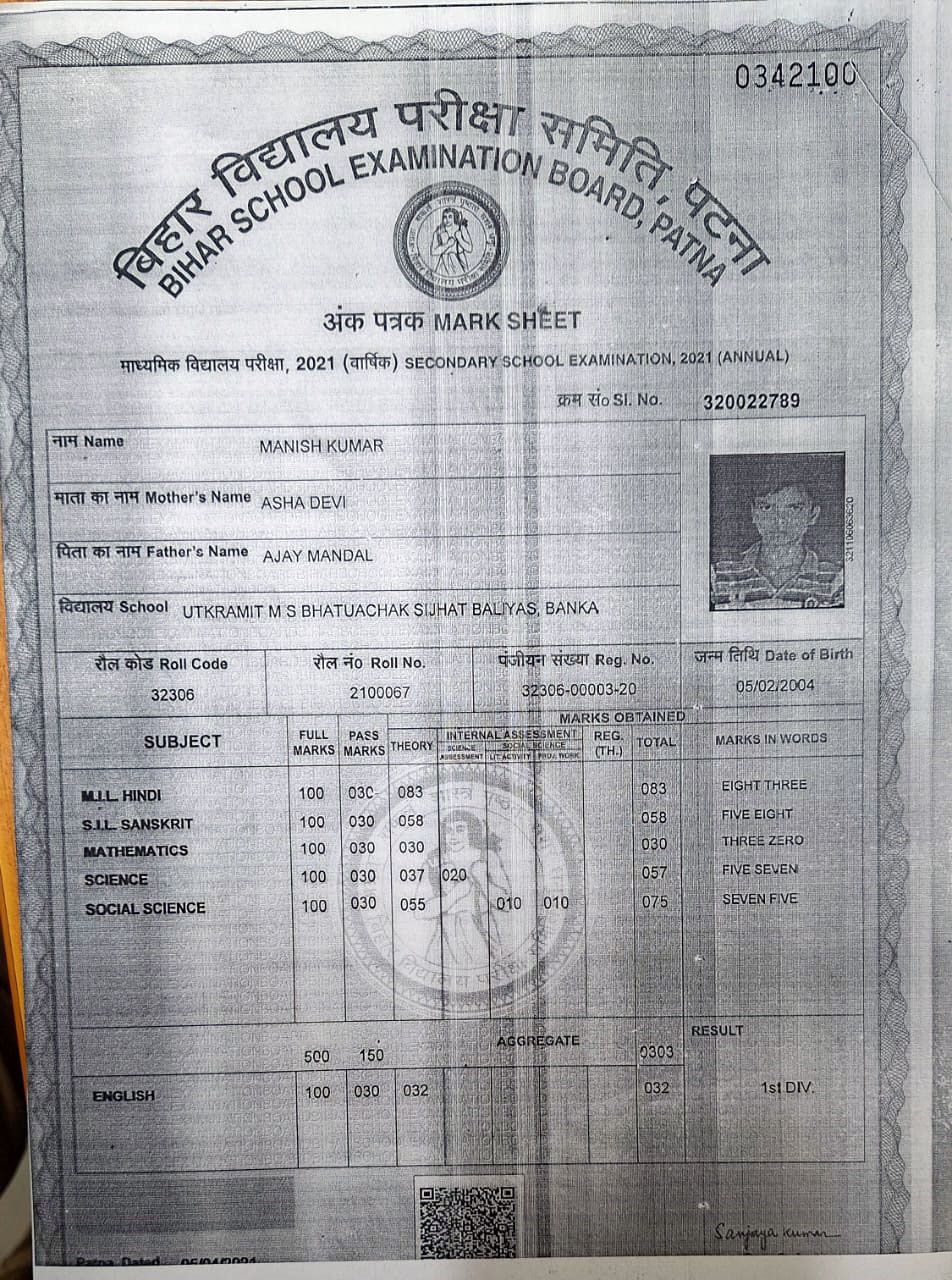 0342100
बिहार विद्यालय परीक्षा समिति, पटना
BIHAR SCHOOL EXAMINATION BOARD, PATNA
अंक पत्रक MARK SHEET
माध्यमिक विद्यालय परीक्षा, 2021 (वार्षिक) SECONDARY SCHOOL EXAMINATION, 2021 (ANNUAL)
क्रम सं० Sl. No. 320022789
नाम Name MANISH KUMAR
माता का नाम Mother's Name ASHA DEVI
पिता का नाम Father's Name AJAY MANDAL
विद्यालय School UTKRAMIT M S BHATUACHAK SIJHAT BALIYAS, BANKA
रौल कोड Roll Code रौल नं० Roll No. पंजीयन संख्या Reg. No. जन्म तिथि Date of Birth
32306 2100067 32306-00003-20 05/02/2004
MARKS OBTAINED
SUBJECT FULL MARKS PASS MARKS THEORY INTERNAL ASSESSMENT REG. (TH.) TOTAL MARKS IN WORDS
SCIENCE SOCIAL SCIENCE
ASSESSMENT LIT.ACTIVITY PROJ.WORK
M.I.L. HINDI 100 030 083 083 EIGHT THREE
S.I.L. SANSKRIT 100 030 058 058 FIVE EIGHT
MATHEMATICS 100 030 030 030 THREE ZERO
SCIENCE 100 030 037 020 057 FIVE SEVEN
SOCIAL SCIENCE 100 030 055 010 010 075 SEVEN FIVE
500 150 AGGREGATE 0303 RESULT
ENGLISH 100 030 032 032 1st DIV.
Sanjaya Kumar
Patna Dated